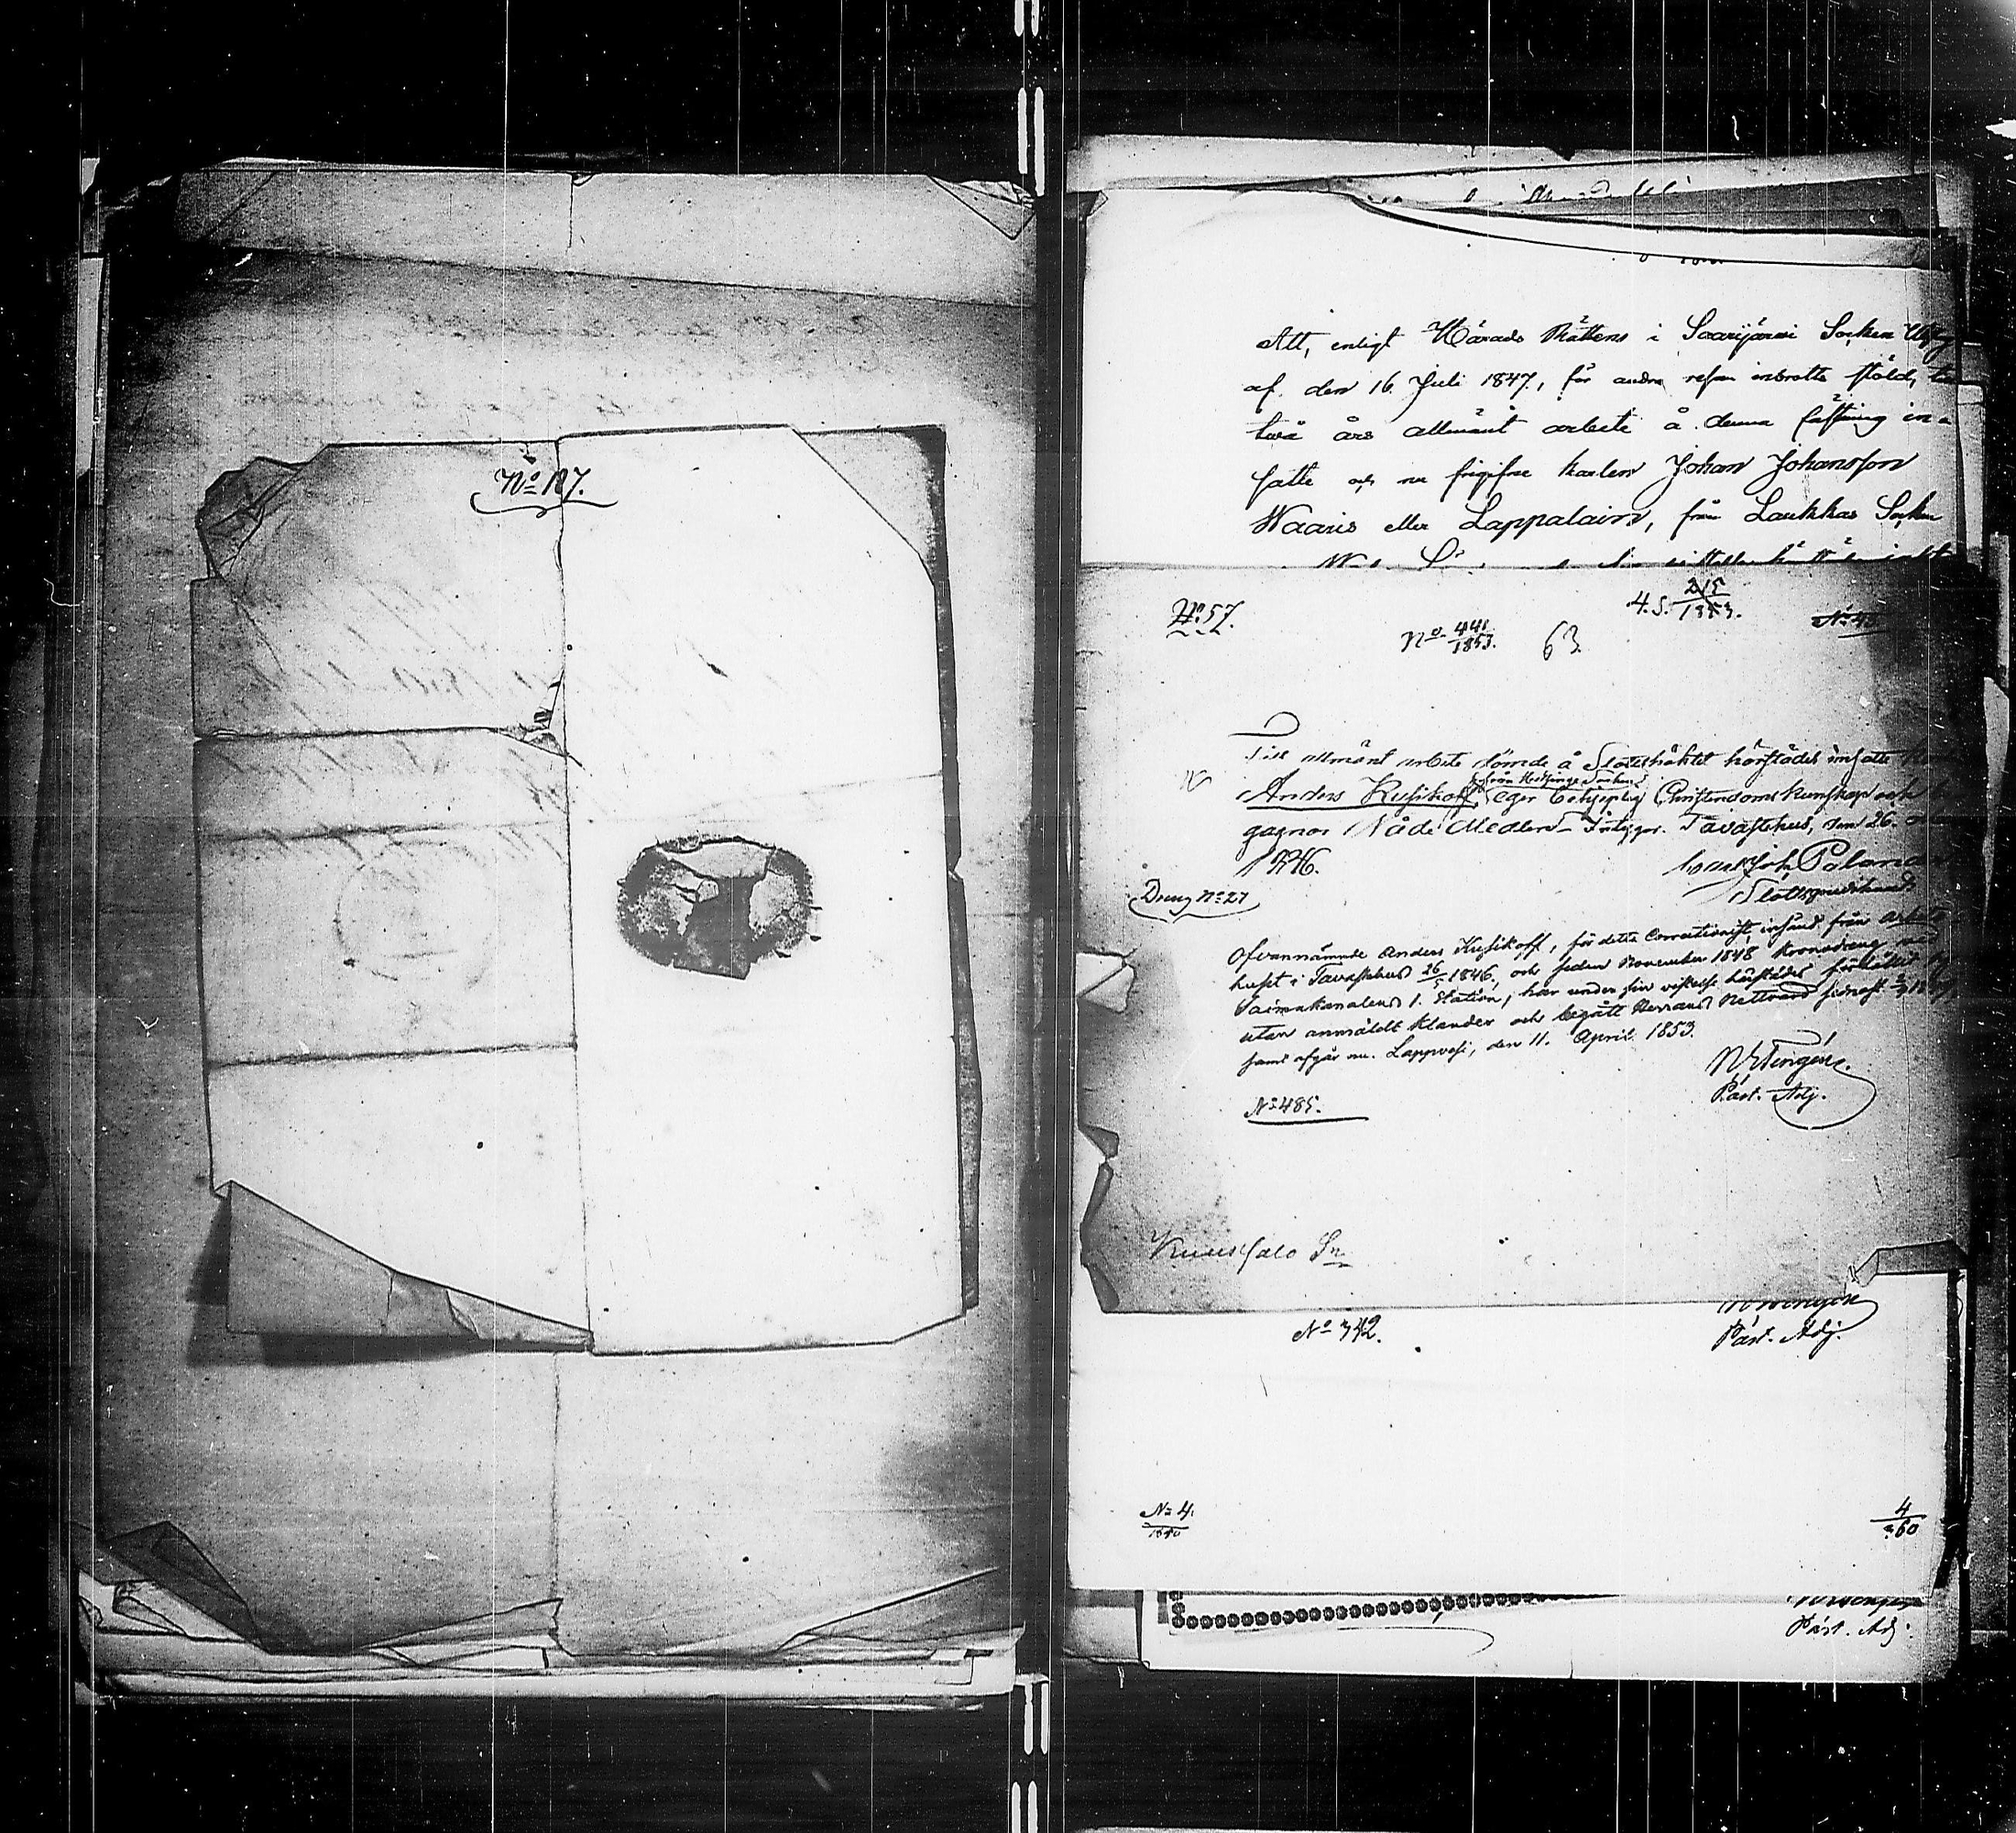 No 127.
Att, enligt Härads Rättens i Saarijärvi Socken
af den 16. Juli 1847, för andra resan inbrotts stöld, till
två års allmänt arbete å denna fästning in-
satte och nu frigifne karlen Johan Johansson
Waaris eller Lappalain, från Laukkas Socken
No 57.
4.S. 215/1853.
No 441/1853.
63.
Till allmänt arbete dömde å Slottshäktet härstädes insatte
från Helsinge Socken
Anders Kusikoff, eger Christendoms kunskap och
gagnar Nåde Medlen. Intygar. Tavastehus, den 26.
1846.
Joh. Palander
Slottspredikant
Dreng No 27
Ofvannämnde Anders Kusikoff, för detta Correctionist inhänd från Arbets
huset i Tavastehus 26/5 1846, och sedan November 1848 Kronodreng vid
Saima kanalens 1. Station, har under sin vistelse härstädes förhållit sig
utan anmäldt klander och begått Herrans Nattvard sednast
samt afgår nu. Lappvesi, den 11. April 1853.
Past. Adj.
No 485.
Kuusjalo Sn
No 342.
Past. Adj.
No 4.
1850
4
60
Past. Adj.